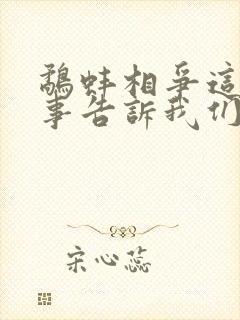 鷸蚌相爭這
事告訴我们
宋心蕊